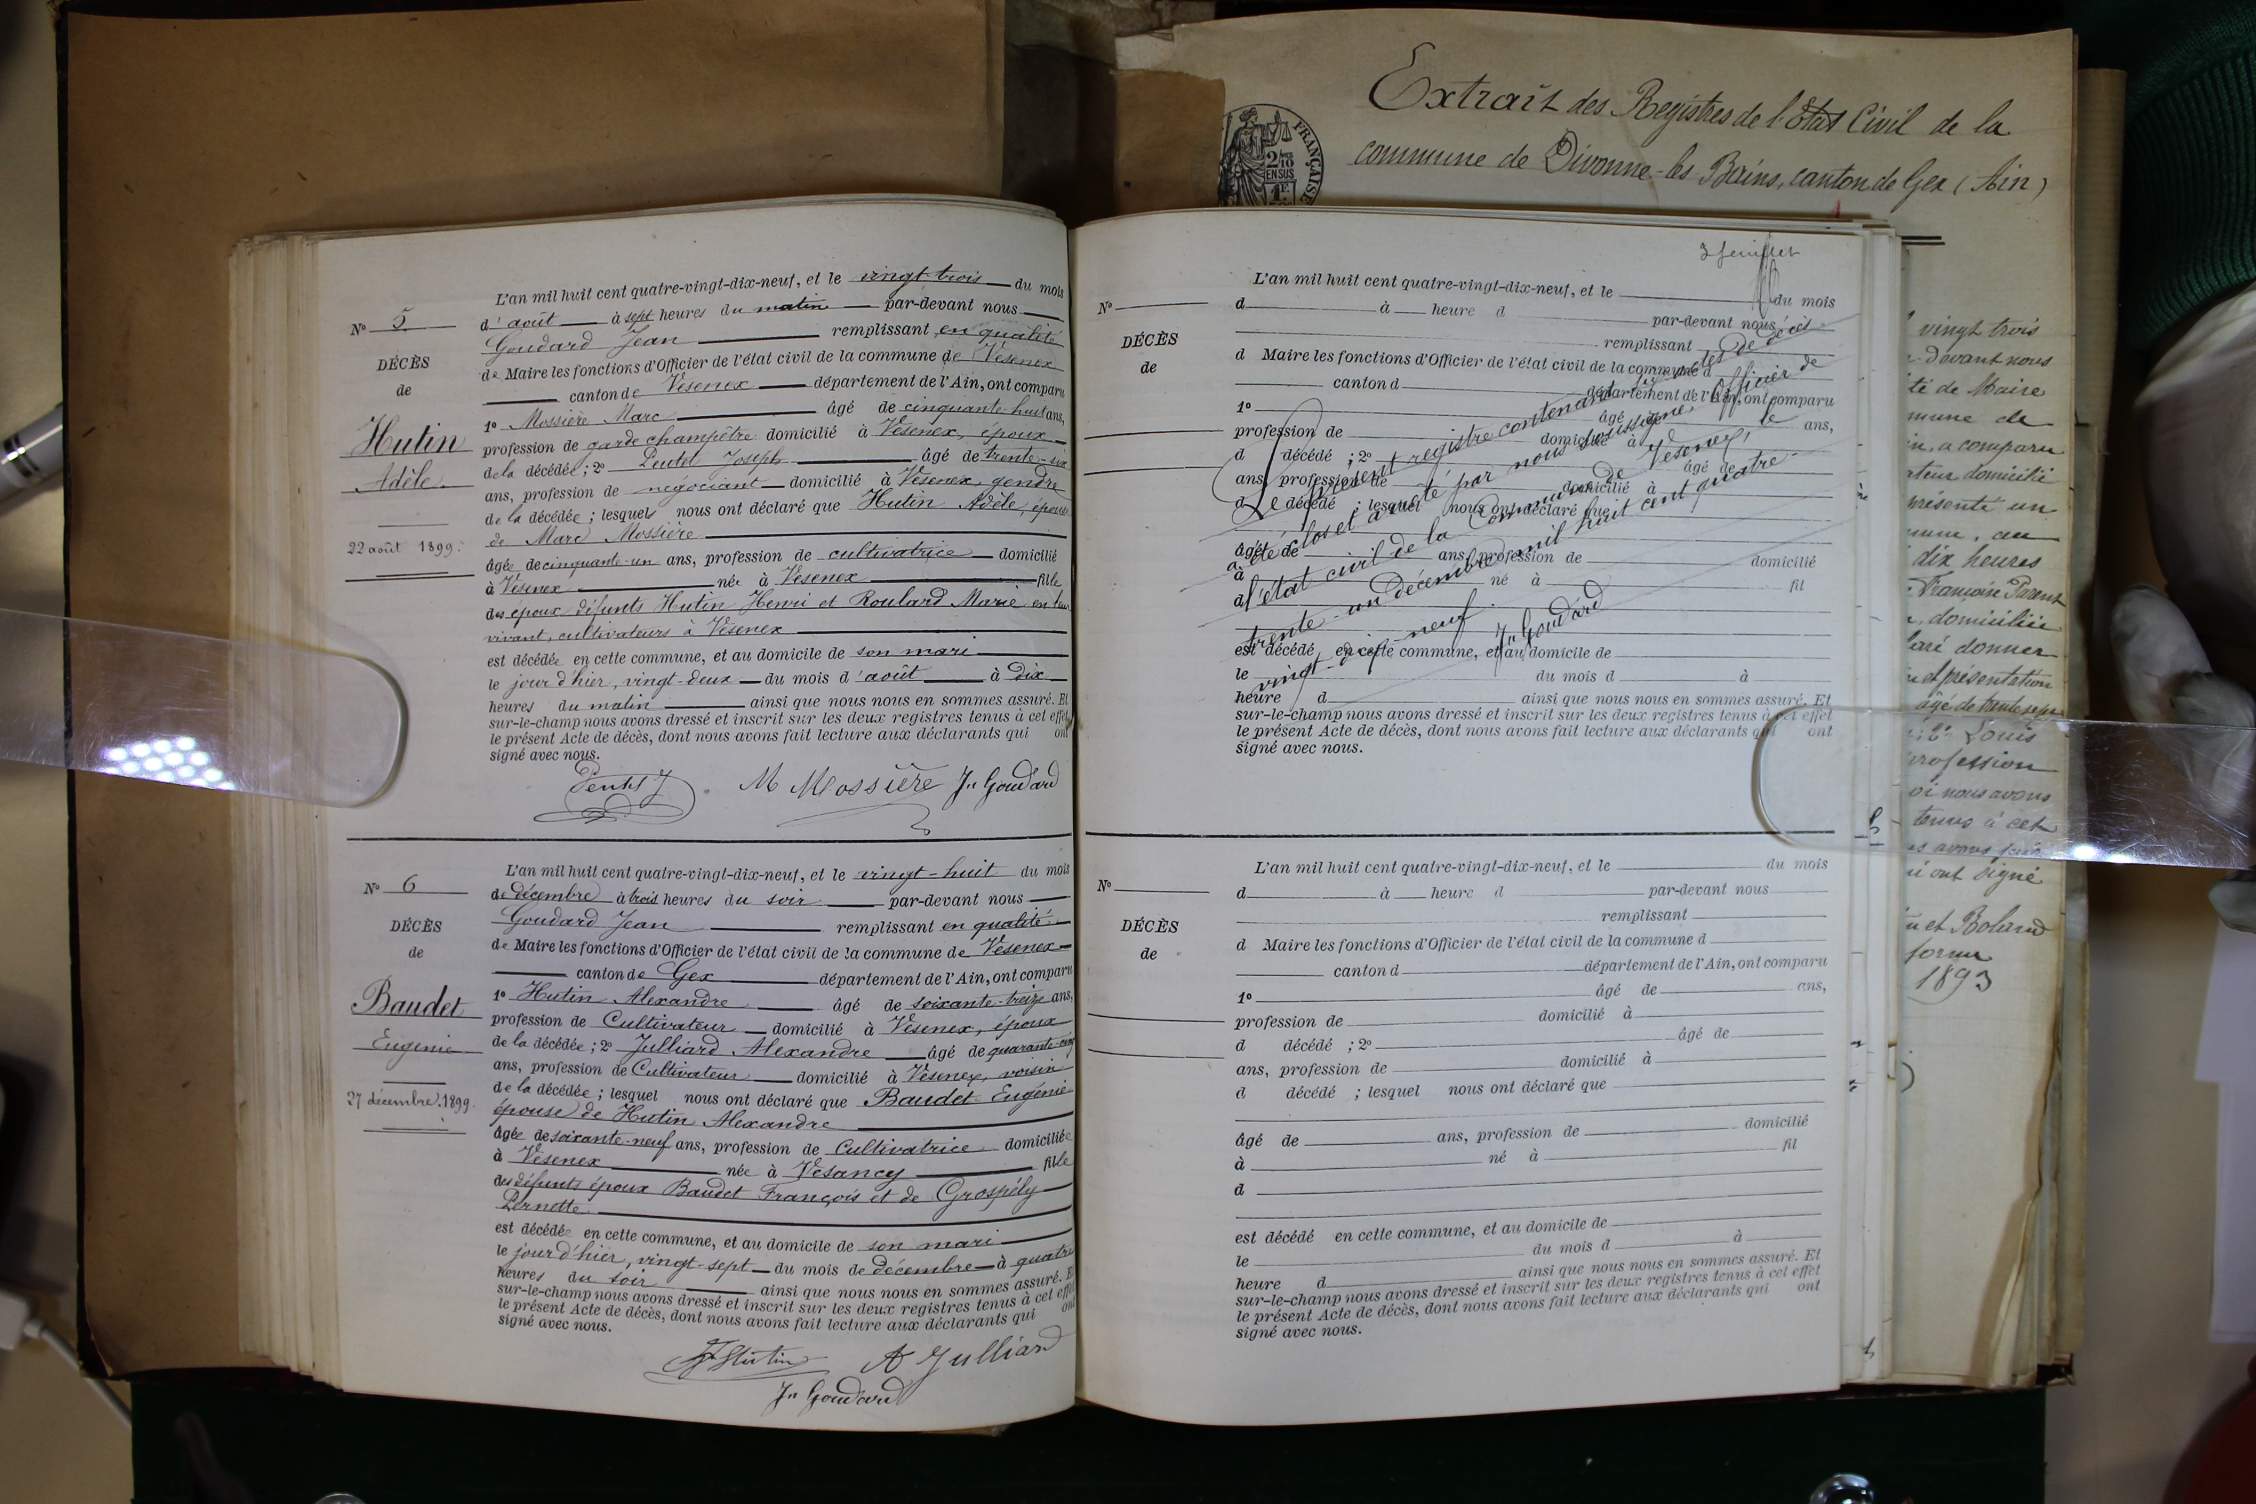 Extrait des Registres de l'Etat Civil de la
commune de Divonne-les-Bains, canton de Gex (Ain)
FRANÇAISE
2/10
EN SUS
1F
L'an mil huit cent quatre-vingt-dix-neuf, et le vingt-trois du mois
N° 5
d'août à sept heures du matin par-devant nous
Goudard Jean remplissant en qualité
DÉCÈS
de Maire les fonctions d'Officier de l'état civil de la commune de Vésenex
de
canton de Vésenex département de l'Ain, ont comparu
1° Mossière Marc âgé de cinquante-huit ans,
Hutin
profession de garde champêtre domicilié à Vésenex, époux
de la décédée ; 2° Pentel Joseph âgé de trente-six
Adèle
ans, profession de négociant domicilié à Vésenex, gendre
de la décédée ; lesquels nous ont déclaré que Hutin Adèle, épouse
de Marc Mossière
22 août 1899.
âgée de cinquante-un ans, profession de cultivatrice domicilié
à Vésenex née à Vesenex fille
des époux défunts Hutin Henri et Roulard Marie en leur
vivant, cultivateurs à Vésenex
est décédée en cette commune, et au domicile de son mari
le jour d'hier, vingt-deux du mois d'août à dix
heures du matin ainsi que nous nous en sommes assuré. Et
sur-le-champ nous avons dressé et inscrit sur les deux registres tenus à cet effet
le présent Acte de décès, dont nous avons fait lecture aux déclarants qui ont
signé avec nous.
M Mossière Jn Goudard
L'an mil huit cent quatre-vingt-dix-neuf, et le vingt-huit du mois
N° 6
de décembre à trois heures du soir par-devant nous
Goudard Jean remplissant en qualité
DÉCÈS
de Maire les fonctions d'Officier de l'état civil de la commune de Vésenex
de
canton de Gex département de l'Ain, ont comparu
1° Hutin Alexandre âgé de soixante-treize ans,
Baudet
profession de Cultivateur domicilié à Vésenex, époux
de la décédée ; 2° Julliard Alexandre âgé de quarante-cinq
Eugénie
ans, profession de Cultivateur domicilié à Vésenex, voisin
de la décédée ; lesquel nous ont déclaré que Baudet Eugénie
27 décembre 1899.
épouse de Hutin Alexandre
âgée de soixante-neuf ans, profession de Cultivatrice domiciliée
à Vésenex née à Vesancy fille
des défunts époux Baudet François et de Grospély
Pernette
est décédée en cette commune, et au domicile de son mari
le jour d'hier, vingt-sept du mois de décembre à quatre
heures du soir ainsi que nous nous en sommes assuré. Et
sur-le-champ nous avons dressé et inscrit sur les deux registres tenus à cet effet
le présent Acte de décès, dont nous avons fait lecture aux déclarants qui ont
signé avec nous.
Hutin A Julliard
Jn Goudard
3e feuillet
L'an mil huit cent quatre-vingt-dix-neuf, et le du mois
N°
d à heure d par-devant nous
remplissant
DÉCÈS
d Maire les fonctions d'Officier de l'état civil de la commune d
de
canton d département de l'Ain, ont comparu
1° âgé de ans,
profession de domicilié à
d décédé ; 2° âgé de
ans, profession de domicilié à
d décédé ; lesquel nous ont déclaré que
âgé de ans, profession de domicilié
à né à fil
d
est décédé en cette commune, et au domicile de
le du mois d à
heure d ainsi que nous nous en sommes assuré. Et
sur-le-champ nous avons dressé et inscrit sur les deux registres tenus à cet effet
le présent Acte de décès, dont nous avons fait lecture aux déclarants qui ont
signé avec nous.
Le présent registre contenant six actes de décès
a été clos et arrêté par nous soussigné, Officier de
l'état civil de la Commune de Vésenex, le
trente-un décembre mil huit cent quatre-
vingt-dix-neuf.
Jn Goudard
L'an mil huit cent quatre-vingt-dix-neuf, et le du mois
N°
d à heure d par-devant nous
remplissant
DÉCÈS
d Maire les fonctions d'Officier de l'état civil de la commune d
de
canton d département de l'Ain, ont comparu
1° âgé de ans,
profession de domicilié à
d décédé ; 2° âgé de
ans, profession de domicilié à
d décédé ; lesquel nous ont déclaré que
âgé de ans, profession de domicilié
à né à fil
d
est décédé en cette commune, et au domicile de
le du mois d à
heure d ainsi que nous nous en sommes assuré. Et
sur-le-champ nous avons dressé et inscrit sur les deux registres tenus à cet effet
le présent Acte de décès, dont nous avons fait lecture aux déclarants qui ont
signé avec nous.
vingt trois
devant nous
té de Maire
mune de
a comparu
domicilié
présenté un
au
dix heures
Françoise Parent
domiciliée
laré donner
et présentation
âgé de trente sept
2° Louis
profession
oi nous avons
tenus à cet
avons fait
ont signé
et Boland
forme
1893